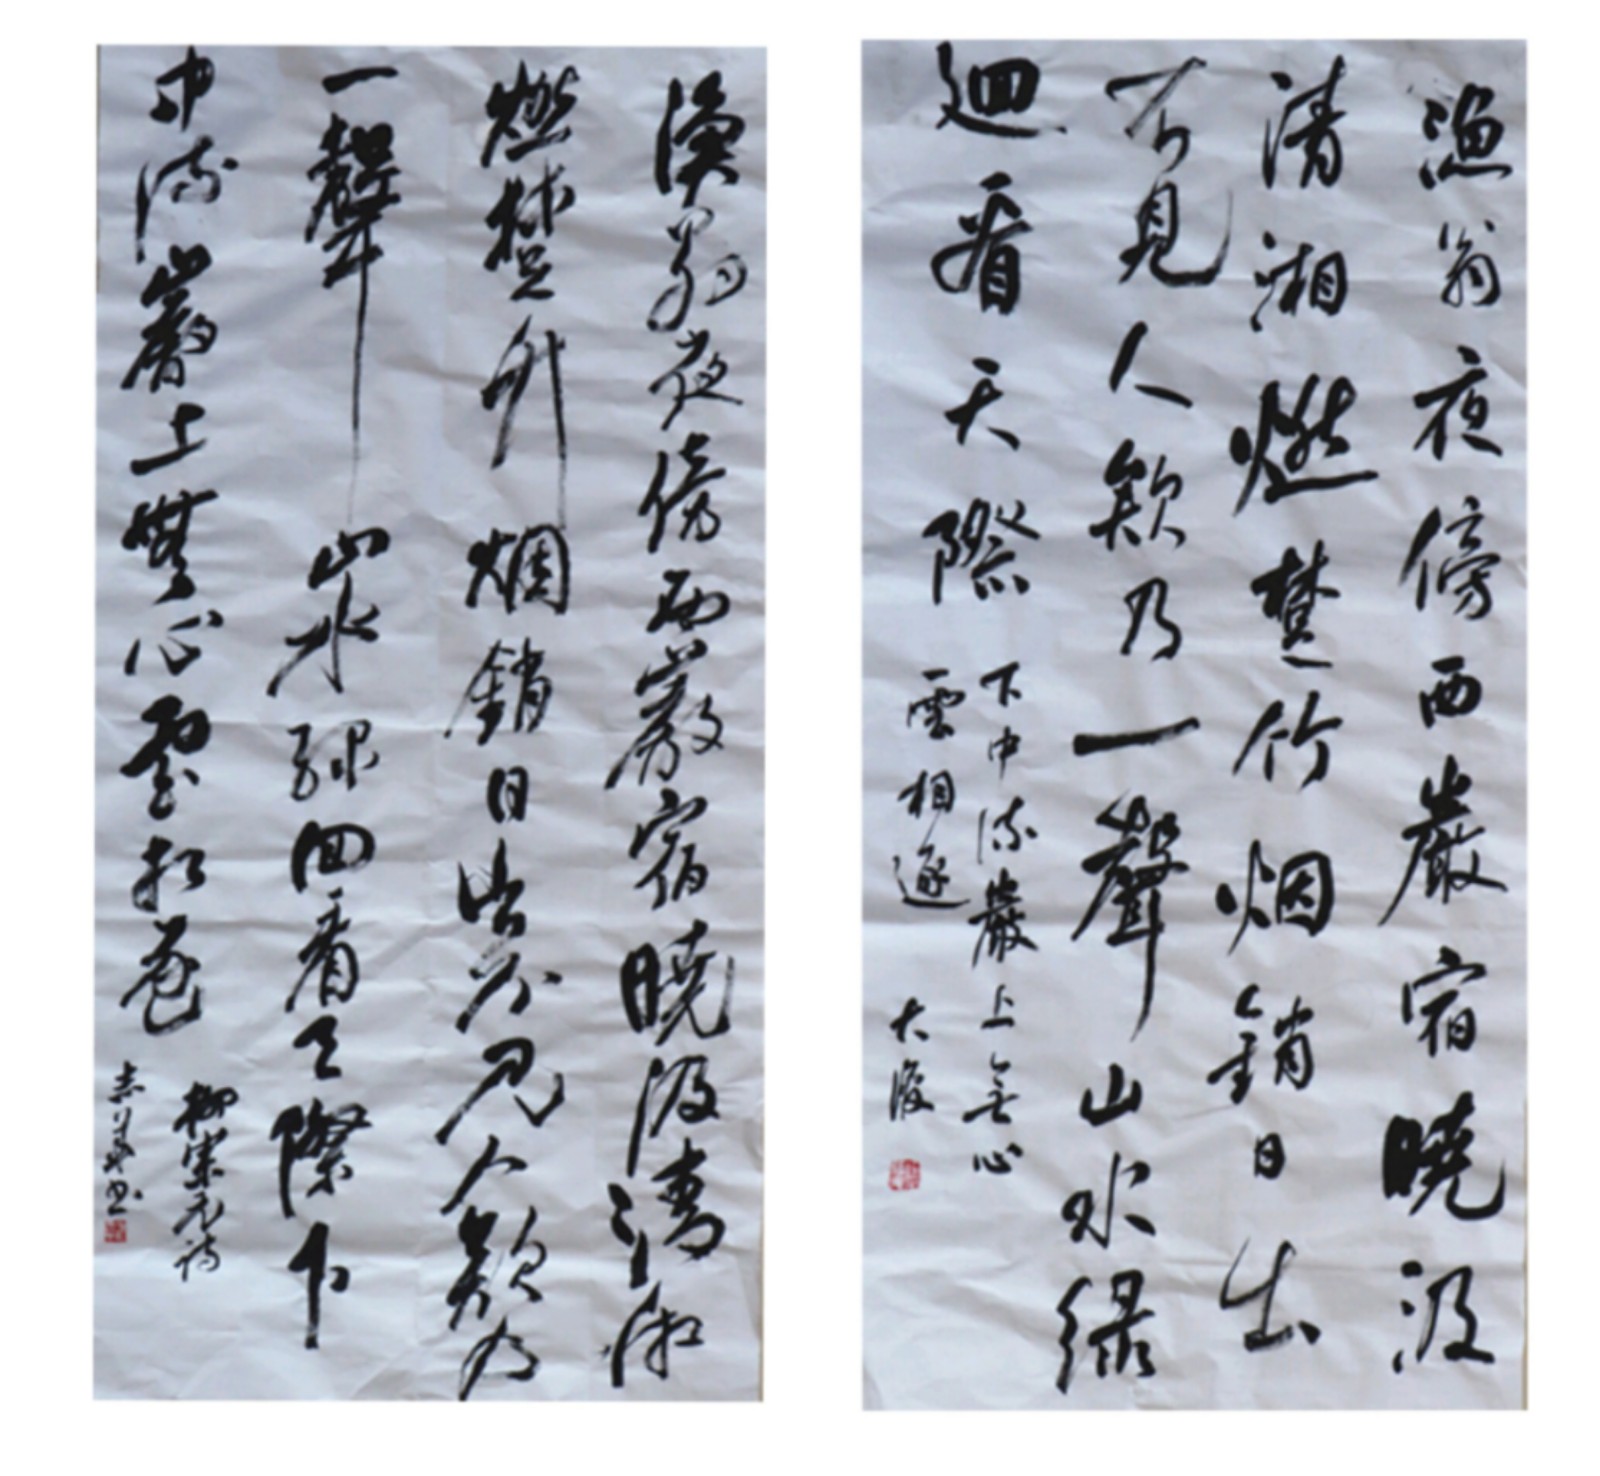 漁翁夜傍西巖宿曉汲
清湘燃楚竹烟銷日出
不見人欸乃一聲山水綠
迴看天際
下中流巖上無心
雲相逐
大
漁翁夜傍西巖宿曉汲清湘
燃楚竹烟銷日出不見人欸乃
一聲山水綠回看天際下
中流巖上無心雲相逐
柳宗元詩
志書